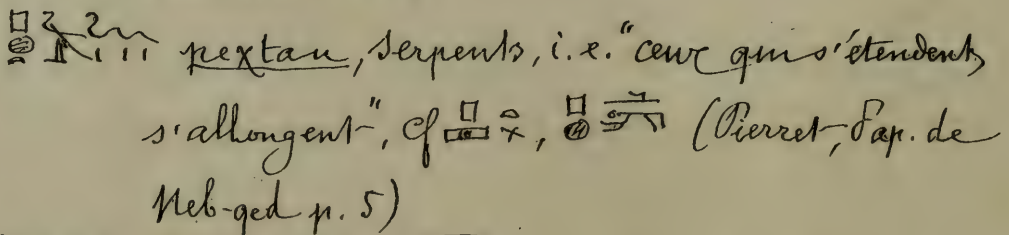 pextau, serpents, i.e. "ceux qui s'étendent,
s'allongent", Cf , (Pierret, Pap. de
Neb-qed p. 5)